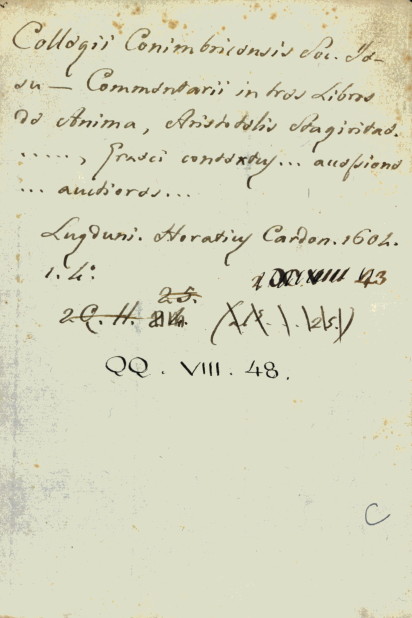 Collegii Conimbricensis Soc. Je-
su — Commentarii in tres Libros
de Anima, Aristotelis Stagiritae.
....., Graeci contextus... accessione
... auctiores...
Lugduni. Horatius Cardon. 1604.
1. 4º.
43
25.
2 C. H.
QQ . VIII . 48.
C